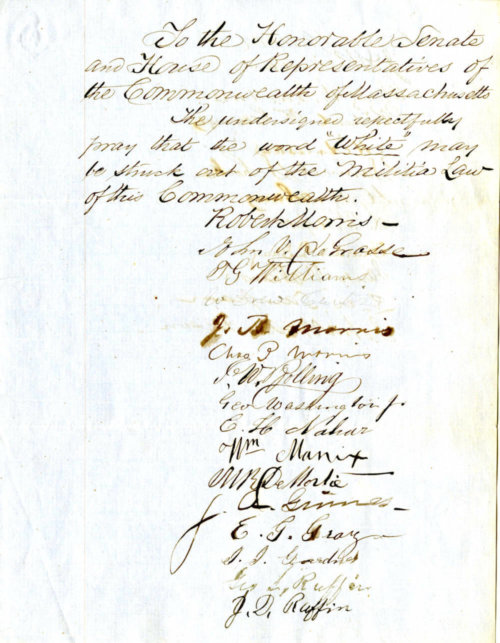 To the Honorable Senate
and House of Representatives of
the Commonwealth of Massachusetts
The undersigned respectfully
pray that the word "White" may
be struck out of the Militia Law
of this Commonwealth.
Robert Morris
John V. DeGrasse
Williams
J. R. Morris
Chas P Morris
J. W. Bolling
Geo Washington Jr.
E. H. Nahar
Wm Manix
DeMortie
J. A. Grimes
E. G. Gray
Geo L. Ruffin
J. D. Ruffin